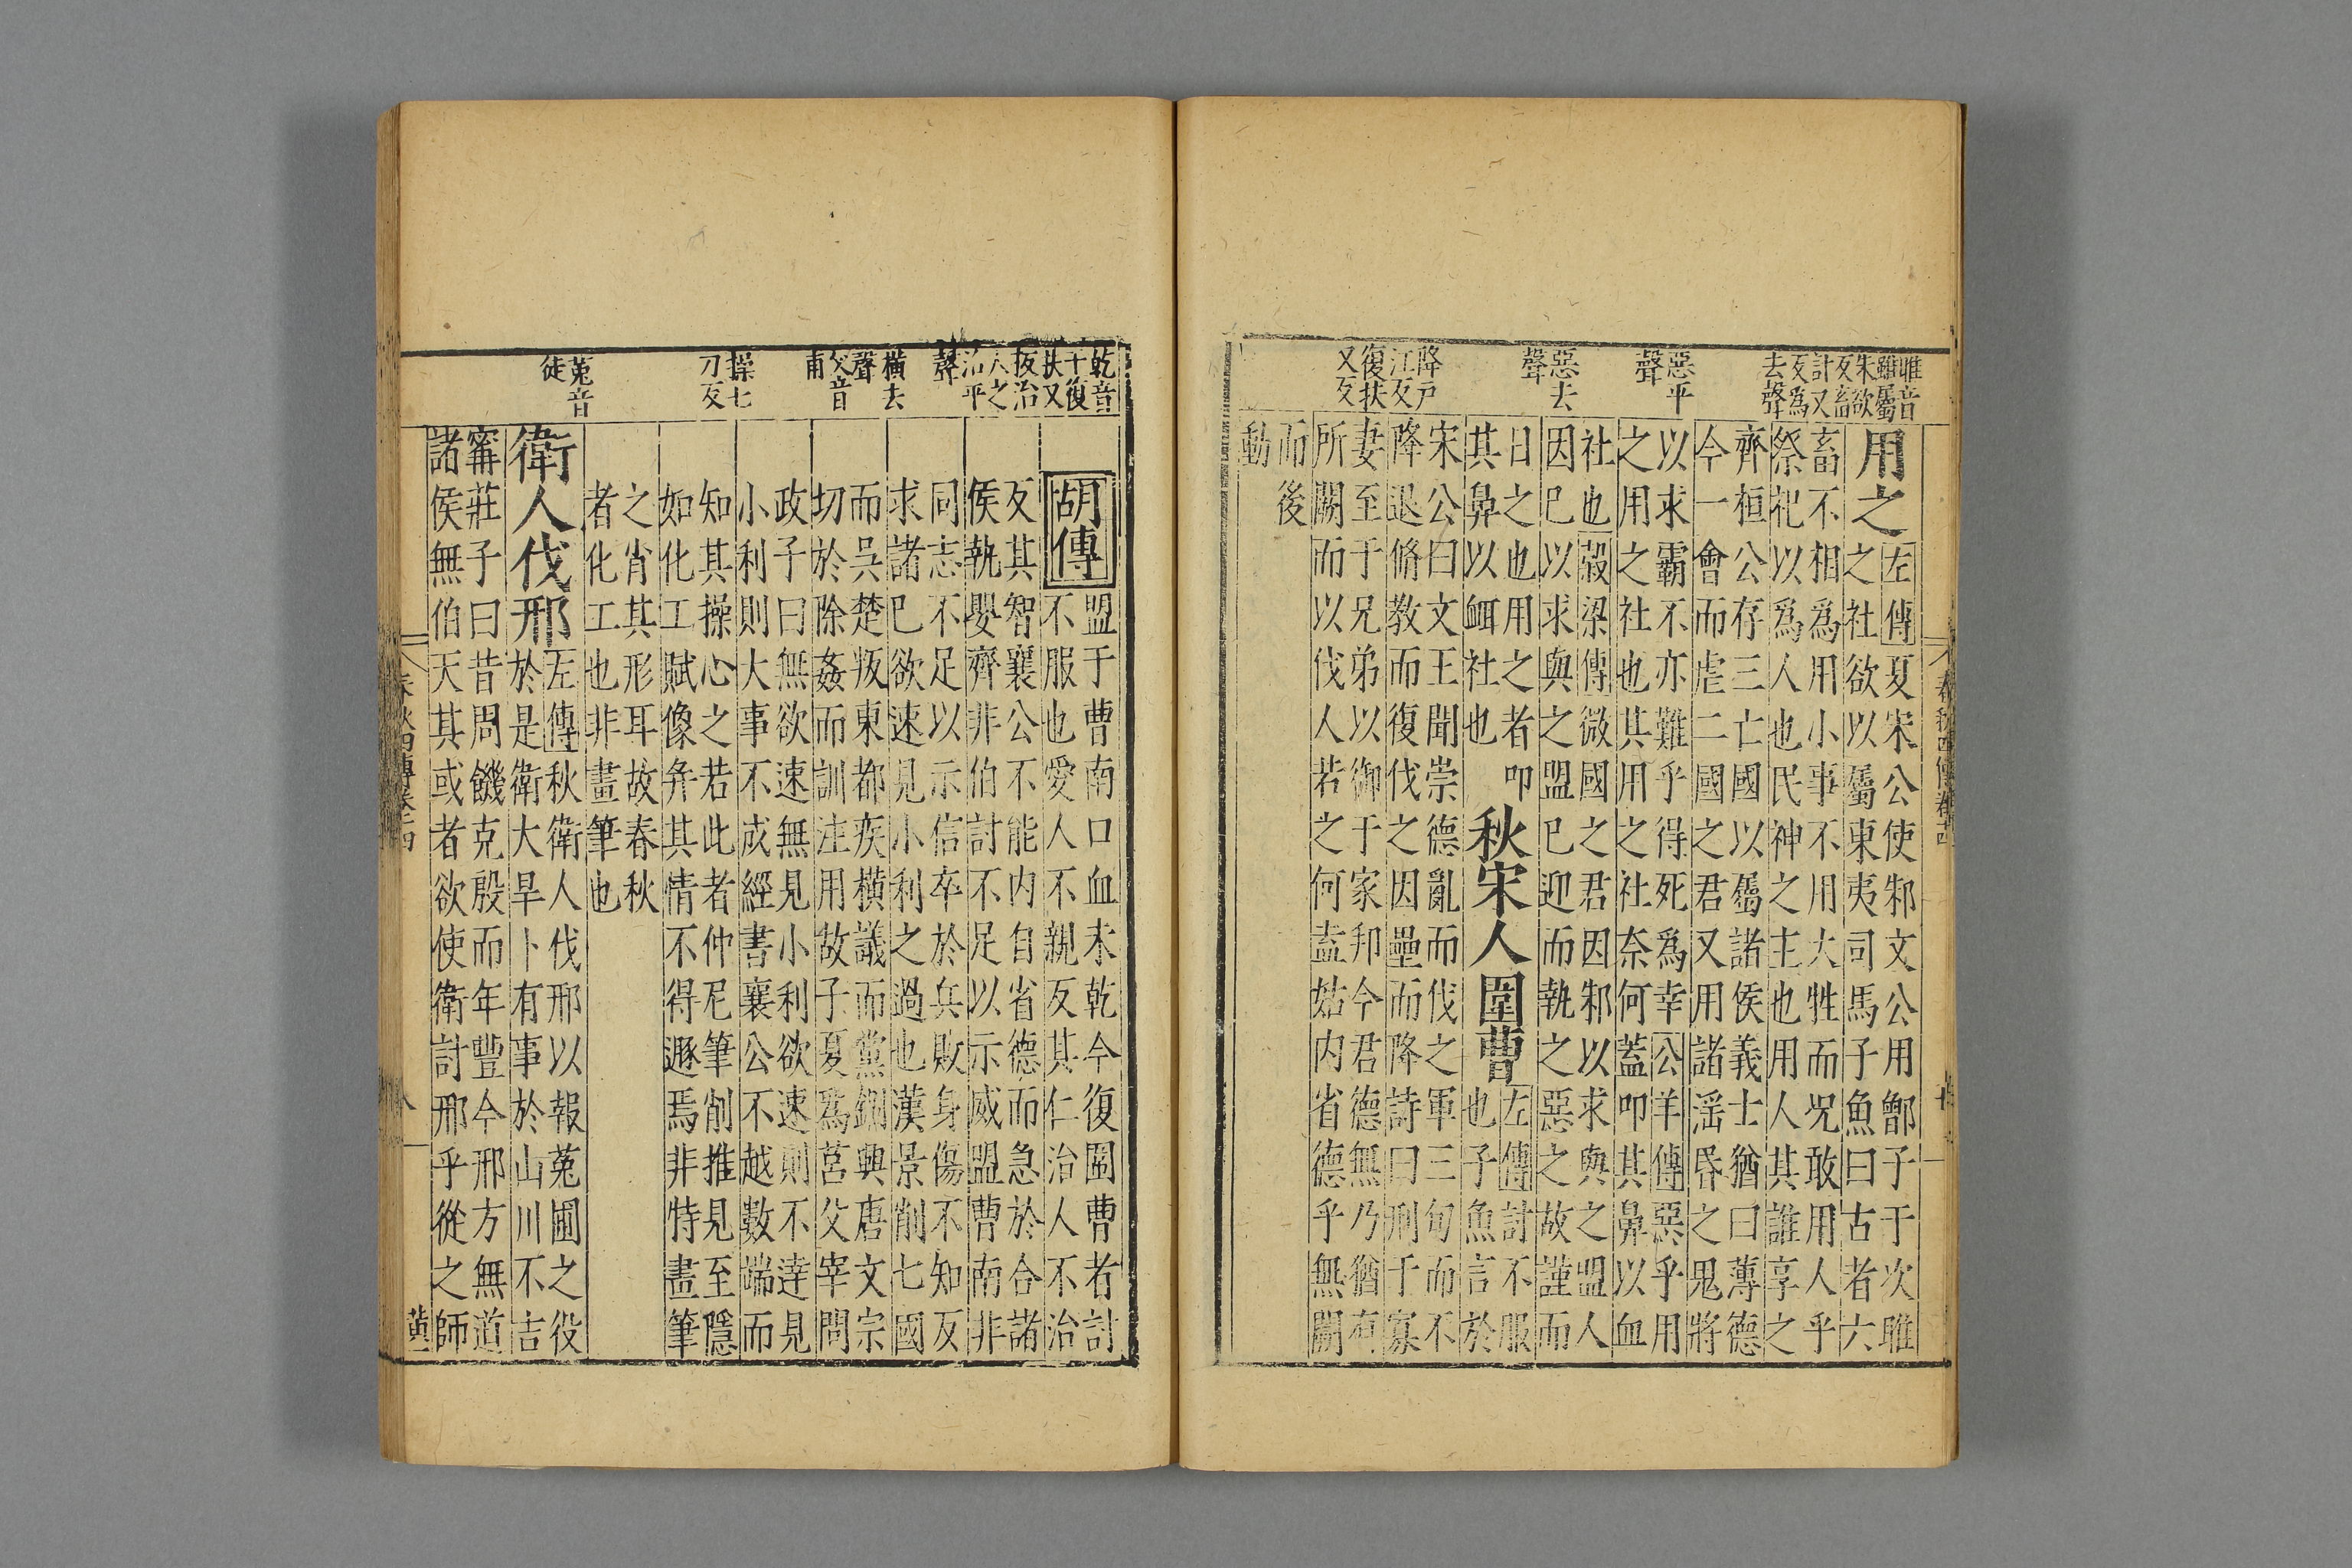 睢音
雖屬
朱欲
反畜
計又
反為
去聲
惡平
聲
惡去
聲
降戶
江反
復扶
又反
春秋四傳卷十四
用之
左傳夏宋公使邾文公用鄫子于次睢
之社欲以屬東夷司馬子魚曰古者六
畜不相爲用小事不用大牲而况敢用人乎
祭祀以爲人也民神之主也用人其誰享之
齊桓公存三亡國以屬諸侯義士猶曰薄德
今一會而虐二國之君又用諸淫昏之鬼將
以求霸不亦難乎得死爲幸公羊傳惡乎用
之用之社也其用之社奈何蓋叩其鼻以血
社也穀梁傳微國之君因邾以求與之盟人
因已以求與之盟已迎而執之惡之故謹而
日之也用之者叩
其鼻以衈社也
秋宋人圍曹
左傳討不服
也子魚言於
宋公曰文王聞崇德亂而伐之軍三旬而不
降退脩教而復伐之因壘而降詩曰刑于寡
妻至于兄弟以御于家邦今君德無乃猶有
所闕而以伐人若之何盍姑内省德乎無闕
而後
動
乾音
干復
扶又
反治
人之
治平
聲
橫去
聲
父音
甫
操七
刀反
菟音
徒
胡傳
盟于曹南口血未乾今復圍曹者討
不服也愛人不親反其仁治人不治
反其智襄公不能内自省德而急於合諸
侯執嬰齊非伯討不足以示威盟曹南非
同志不足以示信卒於兵敗身傷不知反
求諸已欲速見小利之過也漢景削七國
而吳楚叛東都疾橫議而黨錮興唐文宗
切於除姦而訓注用故子夏爲莒父宰問
政子曰無欲速無見小利欲速則不達見
小利則大事不成經書襄公不越數端而
知其操心之若此者仲尼筆削推見至隱
如化工賦像并其情不得遯焉非特畫筆
之肖其形耳故春秋
者化工也非畫筆也
衛人伐邢
左傳秋衛人伐邢以報菟圃之役
於是衛大旱卜有事於山川不吉
甯莊子曰昔周饑克殷而年豐今邢方無道
諸侯無伯天其或者欲使衛討邢乎從之師
春秋四傳卷十四
八
黄